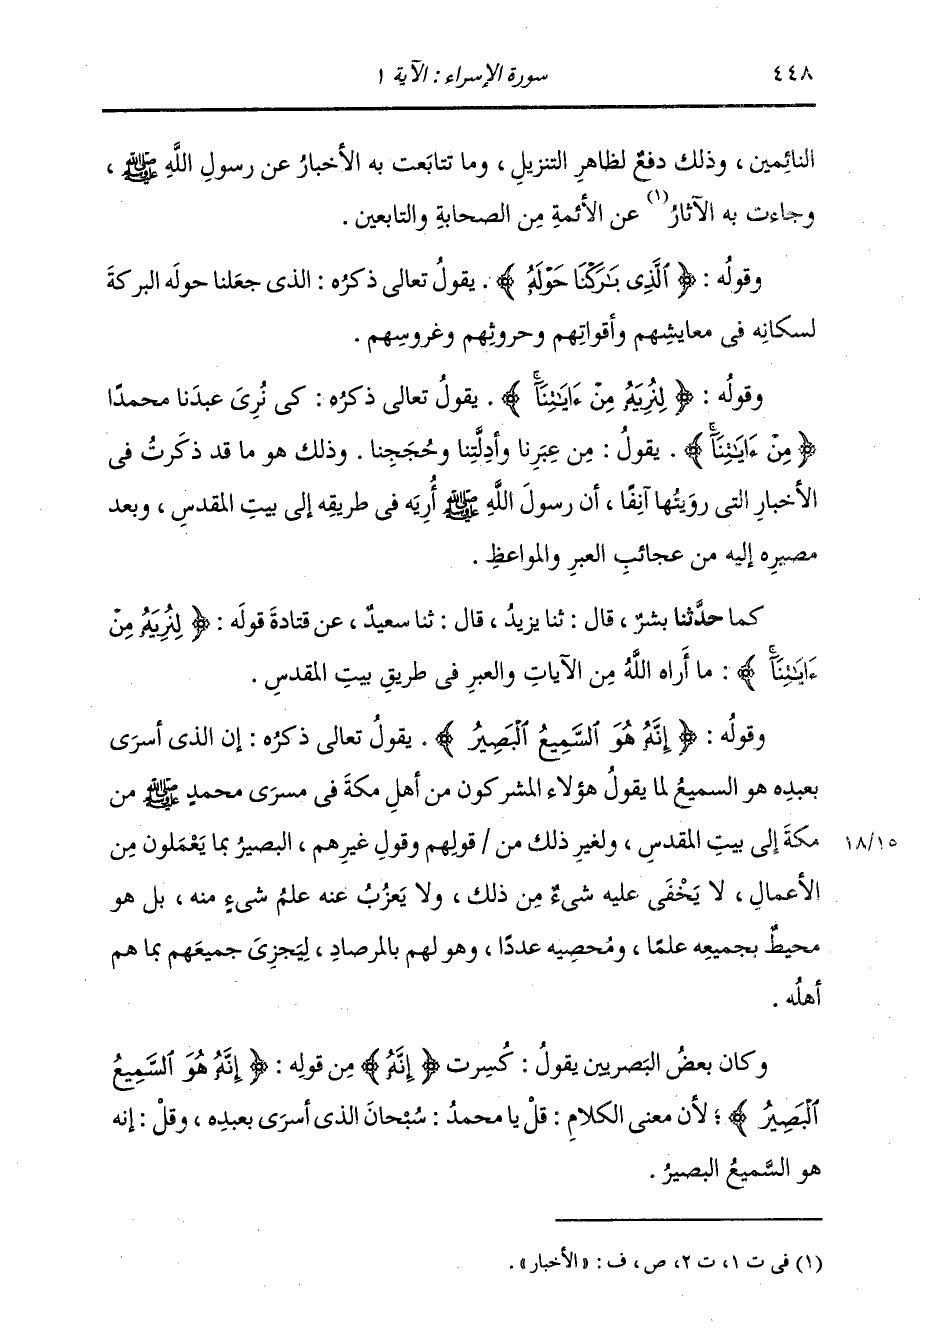 ٤٤٨ سورة الإسراء : الآية ١
النائِمين ، وذلك دفعٌ لظاهرِ التنزيلِ ، وما تتابَعت به الأخبارُ عن رسولِ اللَّهِ ﷺ ،
وجاءت به الآثارُ(١) عن الأئمةِ مِن الصحابةِ والتابعين .
وقولُه : ﴿ ٱلَّذِى بَٰرَكْنَا حَوْلَهُۥ ﴾ . يقولُ تعالى ذكرُه : الذى جعَلنا حولَه البركةَ
لسكانِه فى معايشِهم وأقواتِهم وحروثِهم وغروسِهم .
وقولُه : ﴿ لِنُرِيَهُۥ مِنْ ءَايَٰتِنَآۚ ﴾ . يقولُ تعالى ذكرُه : كى نُرِىَ عبدَنا محمدًا
﴿ مِنْ ءَايَٰتِنَآۚ ﴾ . يقولُ : مِن عِبَرِنا وأدلَّتِنا وحُجَجِنا . وذلك هو ما قد ذكَرتُ فى
الأخبارِ التى روَيتُها آنِفًا ، أن رسولَ اللَّهِ ﷺ أُرِيَه فى طريقِه إلى بيتِ المقدسِ ، وبعد
مصيرِه إليه من عجائبِ العبرِ والمواعظِ .
كما حدَّثنا بشرٌ ، قال : ثنا يزيدُ ، قال : ثنا سعيدٌ ، عن قتادةَ قولَه : ﴿ لِنُرِيَهُۥ مِنْ
ءَايَٰتِنَآۚ ﴾ : ما أَراه اللَّهُ مِن الآياتِ والعبرِ فى طريقِ بيتِ المقدسِ .
وقولُه : ﴿ إِنَّهُۥ هُوَ ٱلسَّمِيعُ ٱلْبَصِيرُ ﴾ . يقولُ تعالى ذكرُه : إن الذى أسرَى
بعبدِه هو السميعُ لما يقولُ هؤلاء المشركون من أهلِ مكةَ فى مسرَى محمدٍ ﷺ من
مكةَ إلى بيتِ المقدسِ ، ولغيرِ ذلك من / قولِهم وقولِ غيرِهم ، البصيرُ بما يَعْمَلون مِن ١٨/١٥
الأعمالِ ، لا يَخْفَى عليه شىءٌ مِن ذلك ، ولا يَعزُبُ عنه علمُ شىءٍ منه ، بل هو
محيطٌ بجميعِه علمًا ، ومُحصِيه عددًا ، وهو لهم بالمرصادِ ، لِيَجزِىَ جميعَهم بما هم
أهلُه .
وكان بعضُ البَصريين يقولُ : كُسِرت ﴿ إِنَّهُۥ ﴾ مِن قولِه : ﴿ إِنَّهُۥ هُوَ ٱلسَّمِيعُ
ٱلْبَصِيرُ ﴾ ؛ لأن معنى الكلامِ : قلْ يا محمدُ : سُبْحانَ الذى أسرَى بعبدِه ، وقلْ : إنه
هو السَّميعُ البصيرُ .
(١) فى ت ١، ت ٢، ص ، ف : «الأخبار» .